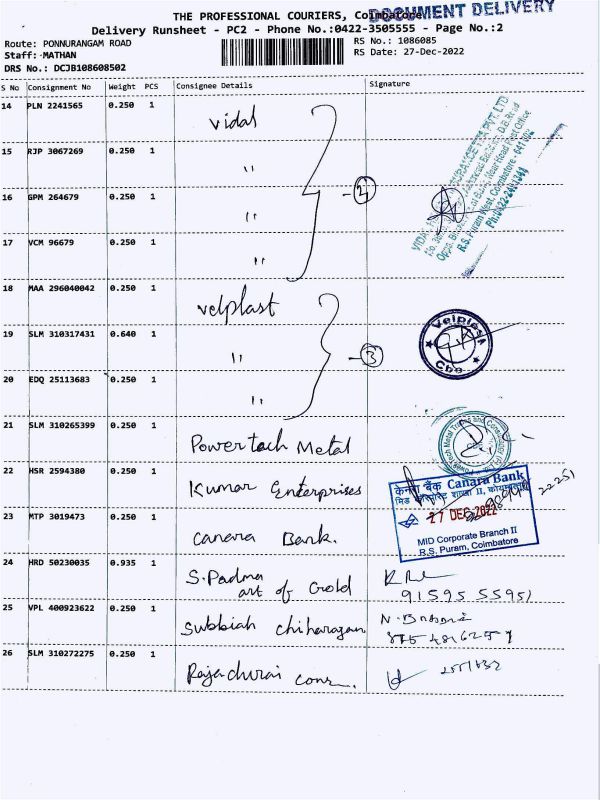 THE PROFESSIONAL COURIERS, Coimbatore
DOCUMENT DELIVERY
Delivery Runsheet - PC2 - Phone No.:0422-3505555 - Page No.:2
Route: PONNURANGAM ROAD
RS No.: 1086085
Staff: MATHAN
RS Date: 27-Dec-2022
DRS No.: DCJB108608502
S No Consignment No Weight PCS Consignee Details Signature
14 PLN 2241565 0.250 1 Vidal
15 RJP 3067269 0.250 1 "
16 GPM 264679 0.250 1 "
17 VCM 96679 0.250 1 "
- 4
R.S. Puram West, Coimbatore - 641 002
18 MAA 296040042 0.250 1 velplast
19 SLM 310317431 0.640 1 "
20 EDQ 25113683 0.250 1 "
- 3
Velplast
Cbe
21 SLM 310265399 0.250 1 Powertech Metal
22 HSR 2594380 0.250 1 Kumar Enterprises
23 MTP 3019473 0.250 1 Canara Bank.
केनरा बैंक Canara Bank
27 DEC 2022
MID Corporate Branch II
R.S. Puram, Coimbatore
24 HRD 50230035 0.935 1 S.Padma
art of Gold
91595 55951
25 VPL 400923622 0.250 1 Subbiah
26 SLM 310272275 0.250 1 Rajadurai